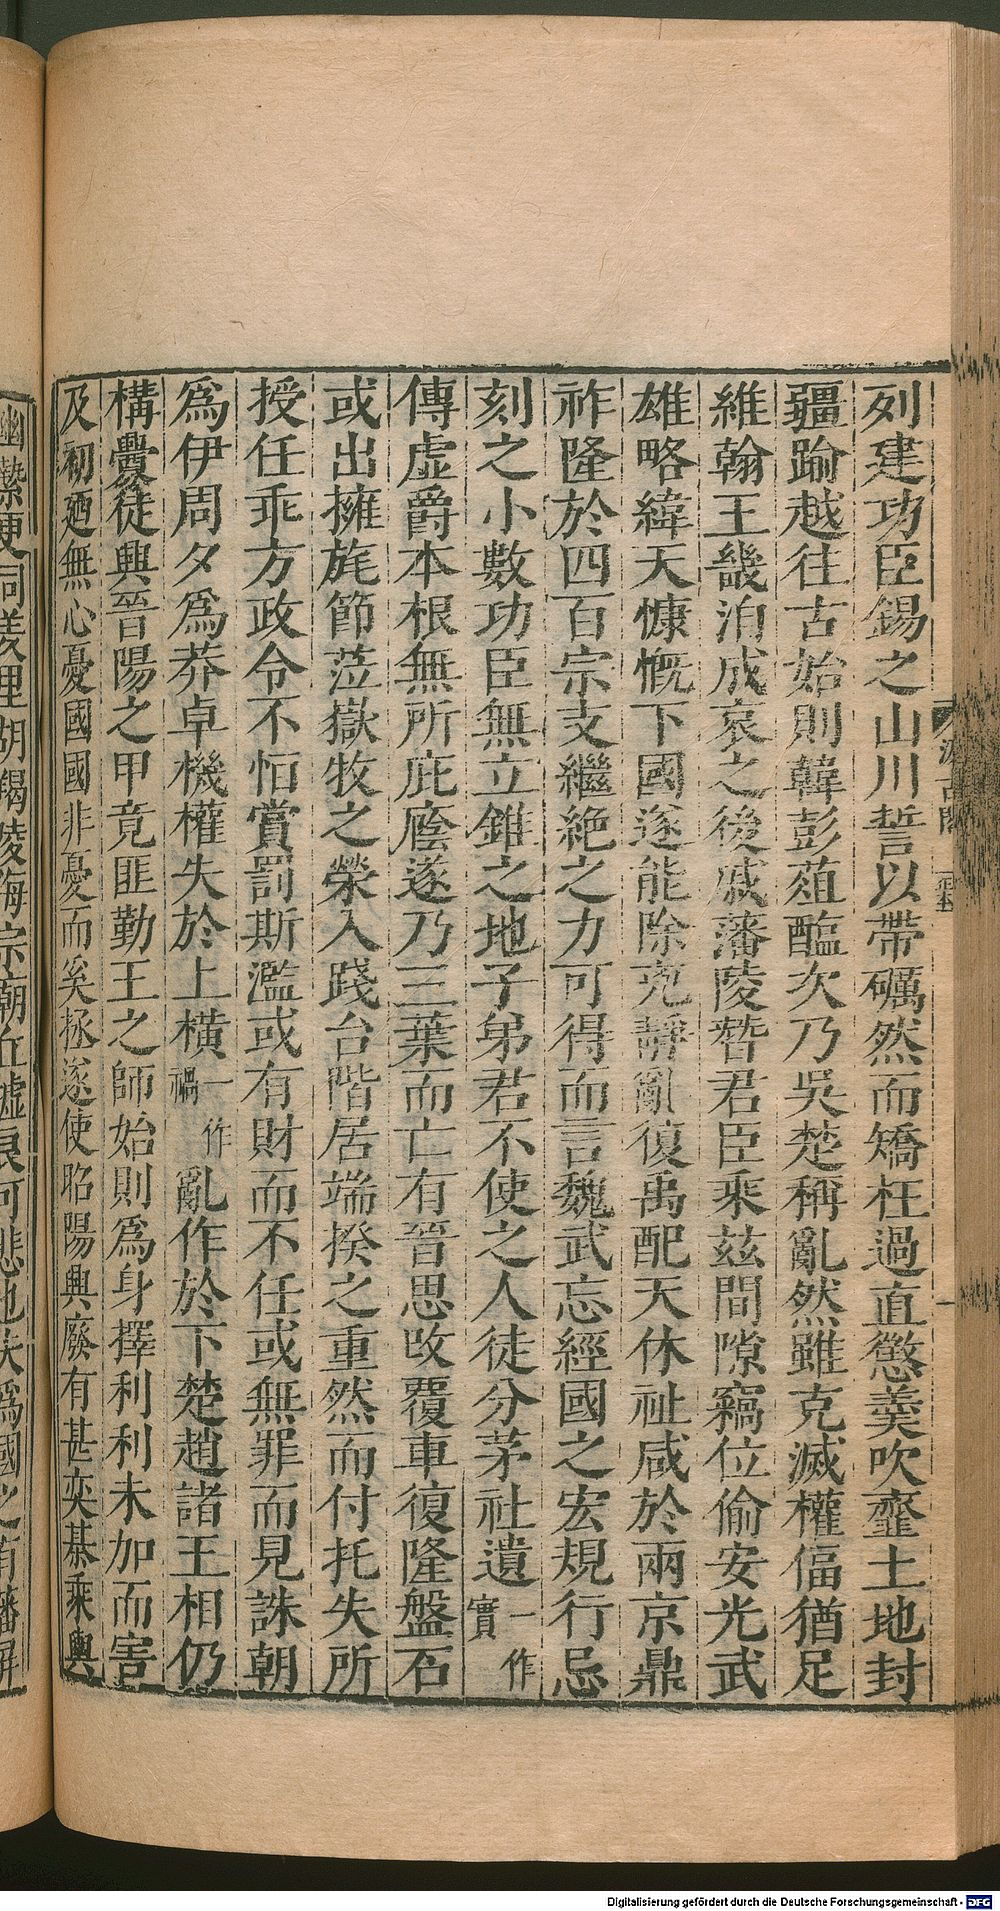 列建功臣錫之山川誓以帶礪然而矯枉過直懲羹吹虀土地封
疆踰越往古始則韓彭葅醢次乃吳楚稱亂然雖克滅權偪猶足
維翰王畿洎成哀之後戚藩陵替君臣乘茲間隙竊位偷安光武
雄略緯天慷慨下國遂能除兇靜亂復禹配天休祉咸於兩京鼎
祚隆於四百宗支繼絕之力可得而言魏武忘經國之宏規行忌
刻之小數功臣無立錐之地子弟君不使之人徒分茅社遺一作實
傳虛爵本根無所庇廕遂乃三葉而亡有晉思改覆車復隆盤石
或出擁旄節蒞嶽牧之榮入踐台階居端揆之重然而付托失所
授任乖方政令不恒賞罰斯濫或有財而不任或無罪而見誅朝
爲伊周夕爲莽卓機權失於上橫一作禍亂作於下楚趙諸王相仍
構釁徒興晉陽之甲竟匪勤王之師始則爲身擇利利未加而害
及初廼無心憂國國非憂而奚拯遂使昭陽興廢有甚奕棊乘輿
幽縶更同羑里胡羯陵海宗廟丘墟良可悲也夫爲國之有藩屏
汲古閣
Digitalisierung gefördert durch die Deutsche Forschungsgemeinschaft - DFG